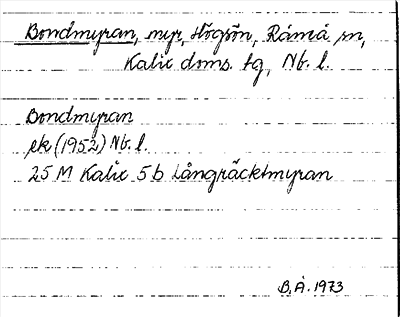 Bondmyran, myr, Högsön, Råmå sn,
Kalix doms. tg, Nb. l.
Bondmyran
ek (1952) Nb. l.
25 M Kalix 5 b Långräcktmyran
B.Å. 1973